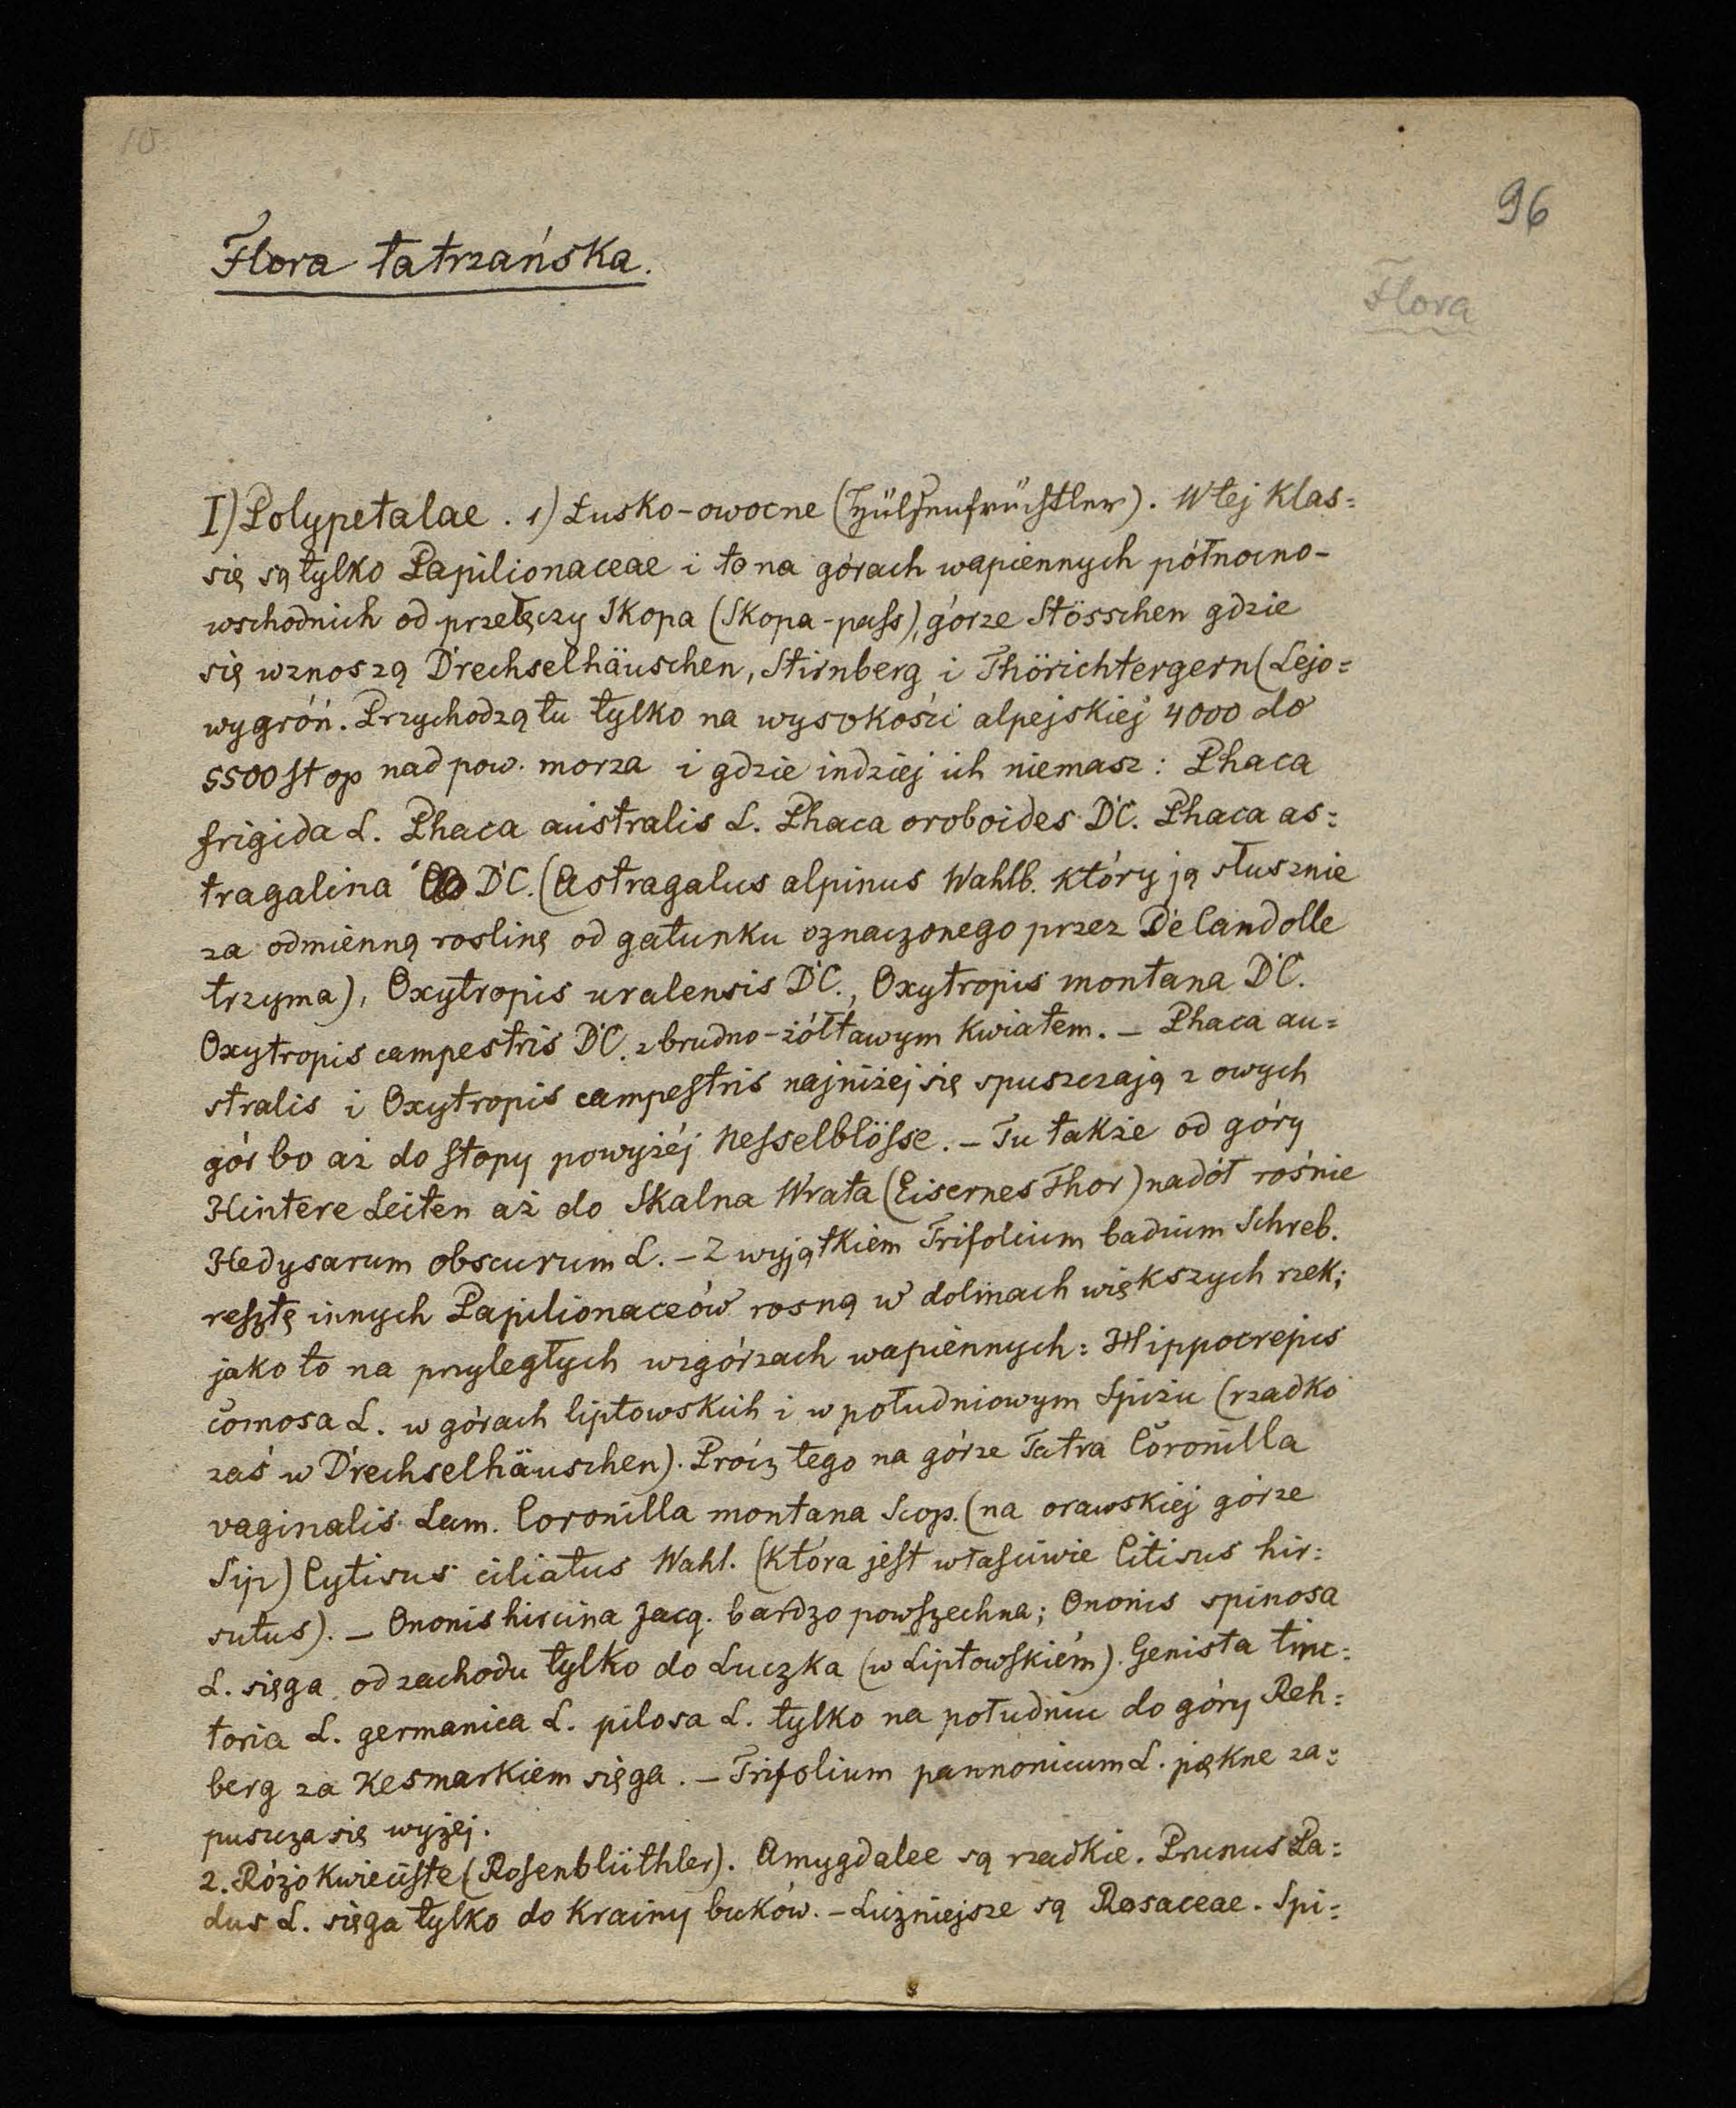 10
96
Flora tatrzańska.
Flora
I) Polypetalae. 1) Łusko-owocne (Hülsenfrüchtler). W tej klas=
się są tylko Papilionaceae i to na górach wapiennych północno-
wschodnich od przełęczy Skopa (Skopa-pass), górze Stösschen gdzie
się wznoszą Drechselhäuschen, Stirnberg i Thörichtergern (Lejo=
wygróń. Przychodzą tu tylko na wysokości alpejskiej 4000 do
5500 stop nad pow. morza i gdzie indziej ich niemasz: Phaca
frigida L. Phaca australis L. Phaca oroboides DC. Phaca as=
tragalina DC. (Astragalus alpinus Wahlb. który ją słusznie
za odmienną roslinę od gatunku oznaczonego przez De Candolle
trzyma), Oxytropis uralensis DC., Oxytropis montana DC.
Oxytropis campestris DC. z brudno-żółtawym kwiatem. — Phaca au=
stralis i Oxytropis campestris najniżej się spuszczają z owych
gór bo aż do stopy powyżéj Nesselblösse. — Tu także od góry
Hintere Leiten aż do Skalna Wrata (Eisernes Thor) nadół rośnie
Hedysarum obscurum L. — Z wyjątkiem Trifolium badium Schreb.
resztę innych Papilionaceów rosną w dolinach większych rzek;
jako to na przyległych wzgórzach wapiennych: Hippocrepis
comosa L. w górach liptowskich i w południowym Spiżu (rzadko
zaś w Drechselhäuschen). Prócz tego na górze Tatra Coronilla
vaginalis Lam. Coronilla montana Scop. (na orawskiej górze
Sip) Cytisus ciliatus Wahl. (która jest właściwie Citisus hir=
sutus). — Ononis hircina Jacq. bardzo powszechna; Ononis spinosa
L. sięga od zachodu tylko do Luczka (w Liptowskiém). Genista tinc=
toria L. germanica L. pilosa L. tylko na południu do góry Reh=
berg za Kesmarkiem sięga. — Trifolium pannonicum L. piękne za=
puszcza się wyżej.
2. Różokwieciste (Rosenblüthler). Amygdalee są rzadkie. Prunus Pa=
dus L. sięga tylko do Krainy buków. — Liczniejsze są Rosaceae. Spi=